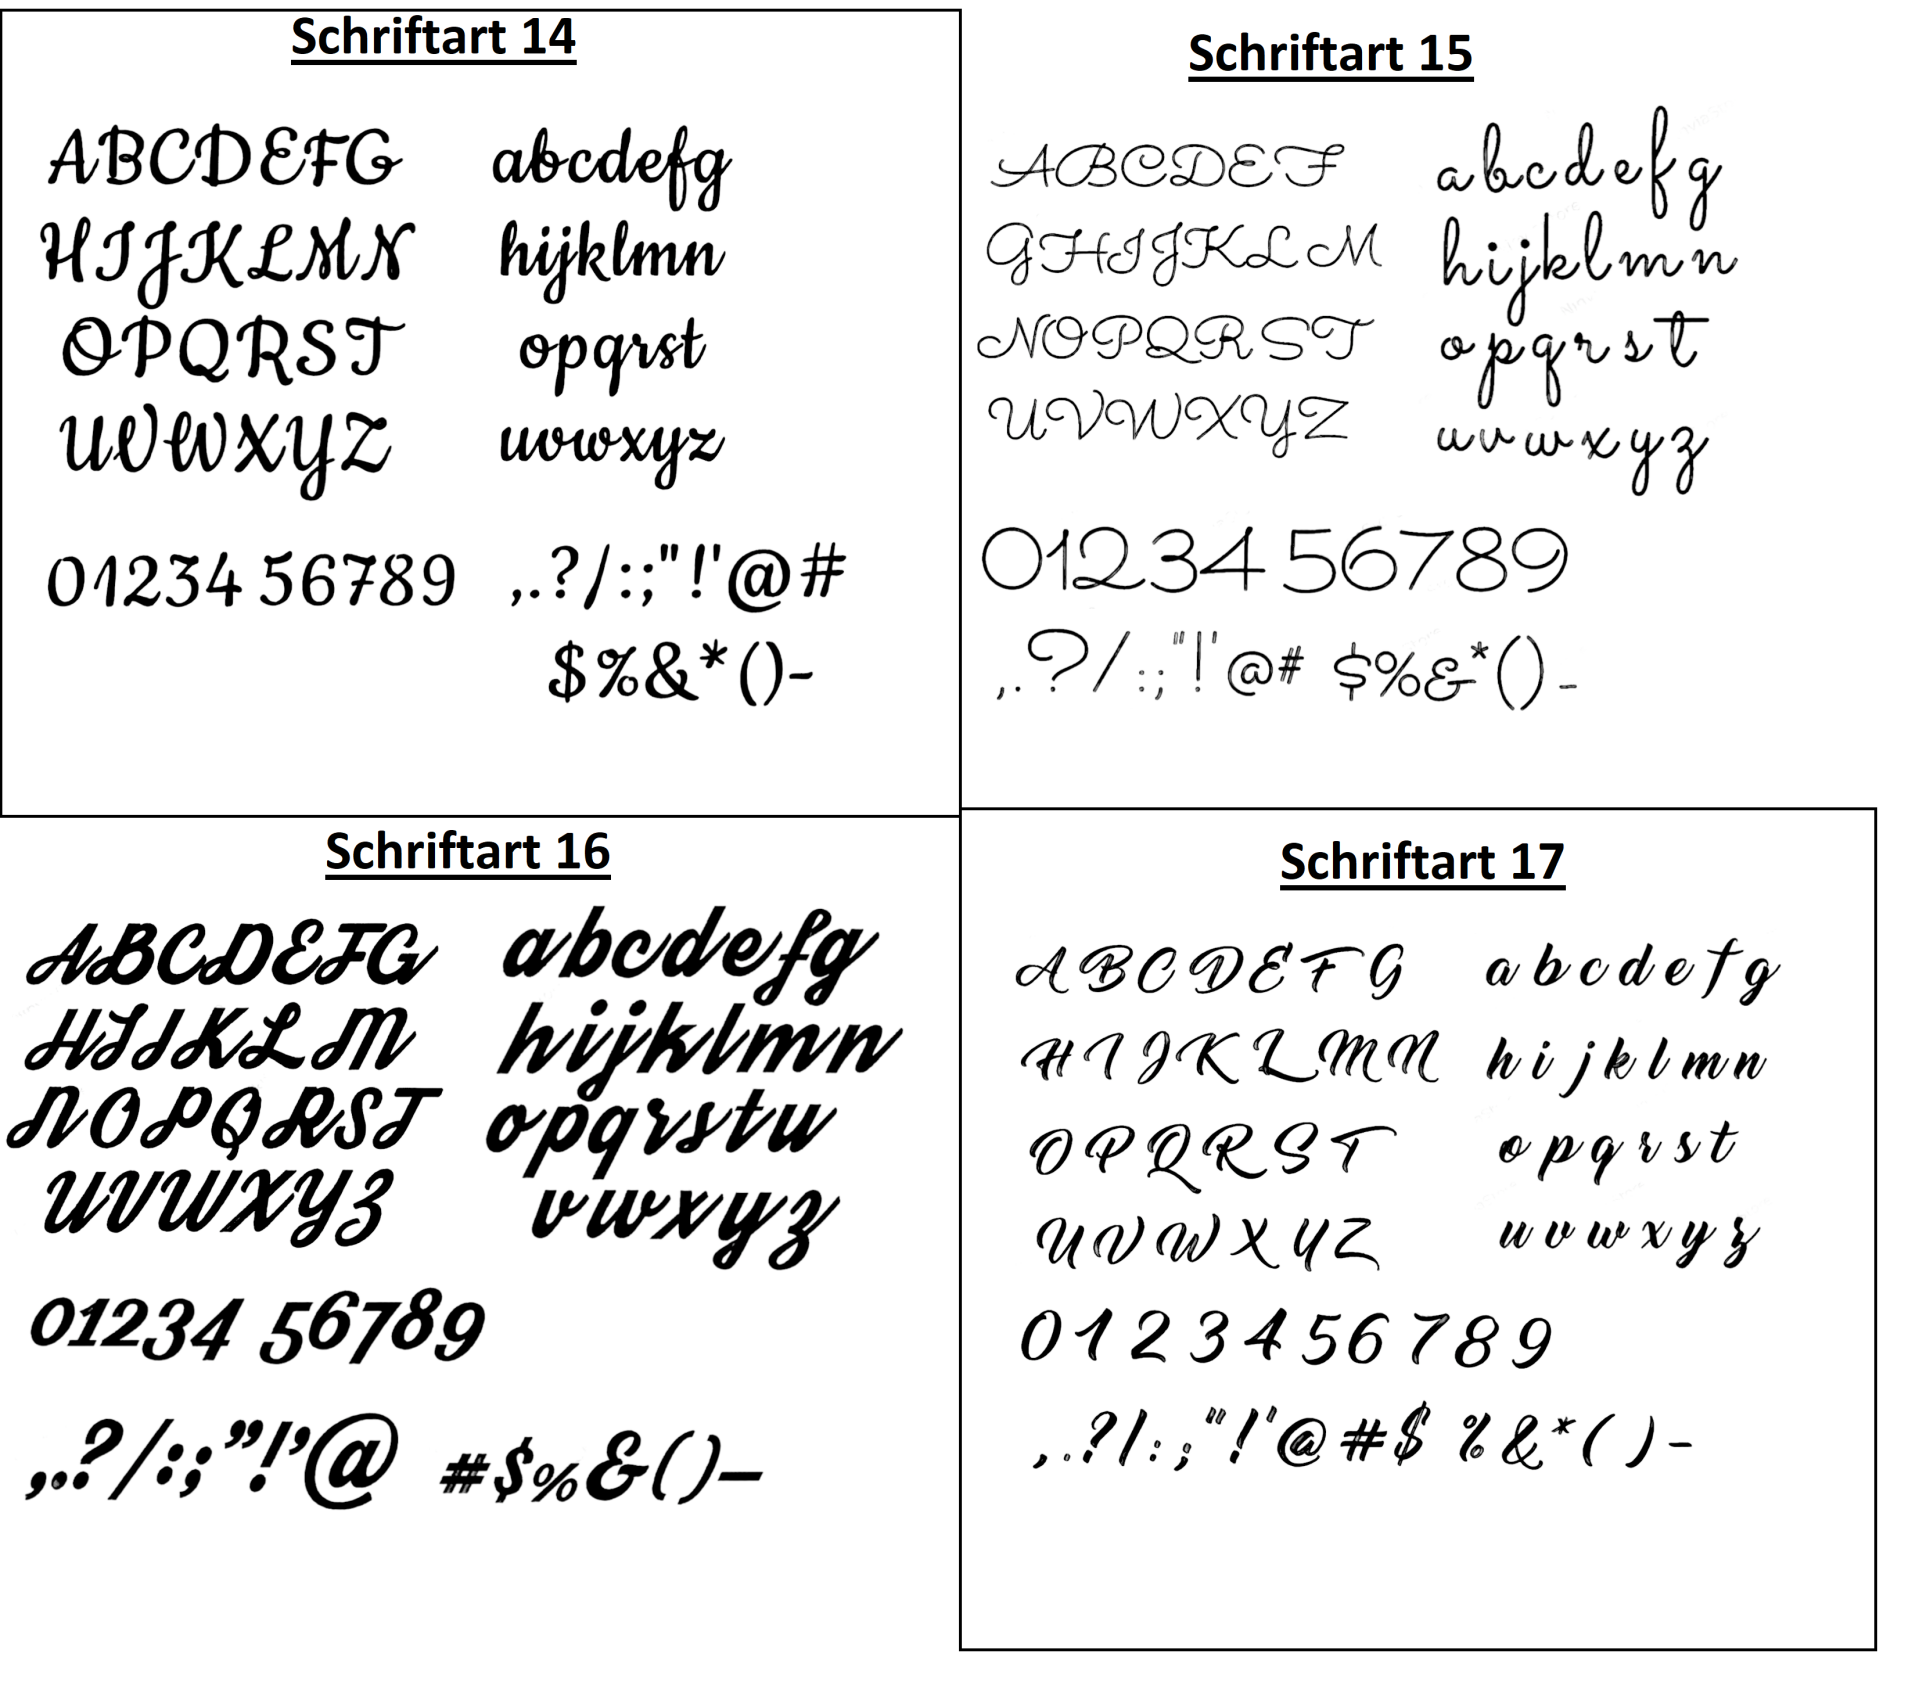 Schriftart 14
ABCDEFG
HIJKLMN
OPQRST
UVWXYZ
abcdefg
hijklmn
opqrst
uvwxyz
01234 56789
,.?/:;"!'@#
$%&*()-
Schriftart 15
ABCDEF
GHIJKLM
NOPQRST
UVWXYZ
abcdefg
hijklmn
opqrst
uvwxyz
01234 56789
,.?/:;"!'@# $%&*()-
Schriftart 16
ABCDEFG
HIJKLM
NOPQRST
UVWXYZ
abcdefg
hijklmn
opqrstu
vwxyz
01234 56789
,.?/:;”!’@ #$%&()-
Schriftart 17
ABCDEFG
HIJKLMN
OPQRST
UVWXYZ
abcdefg
hijklmn
opqrst
uvwxyz
0123456789
,.?/:;"!'@#$ %&*()-